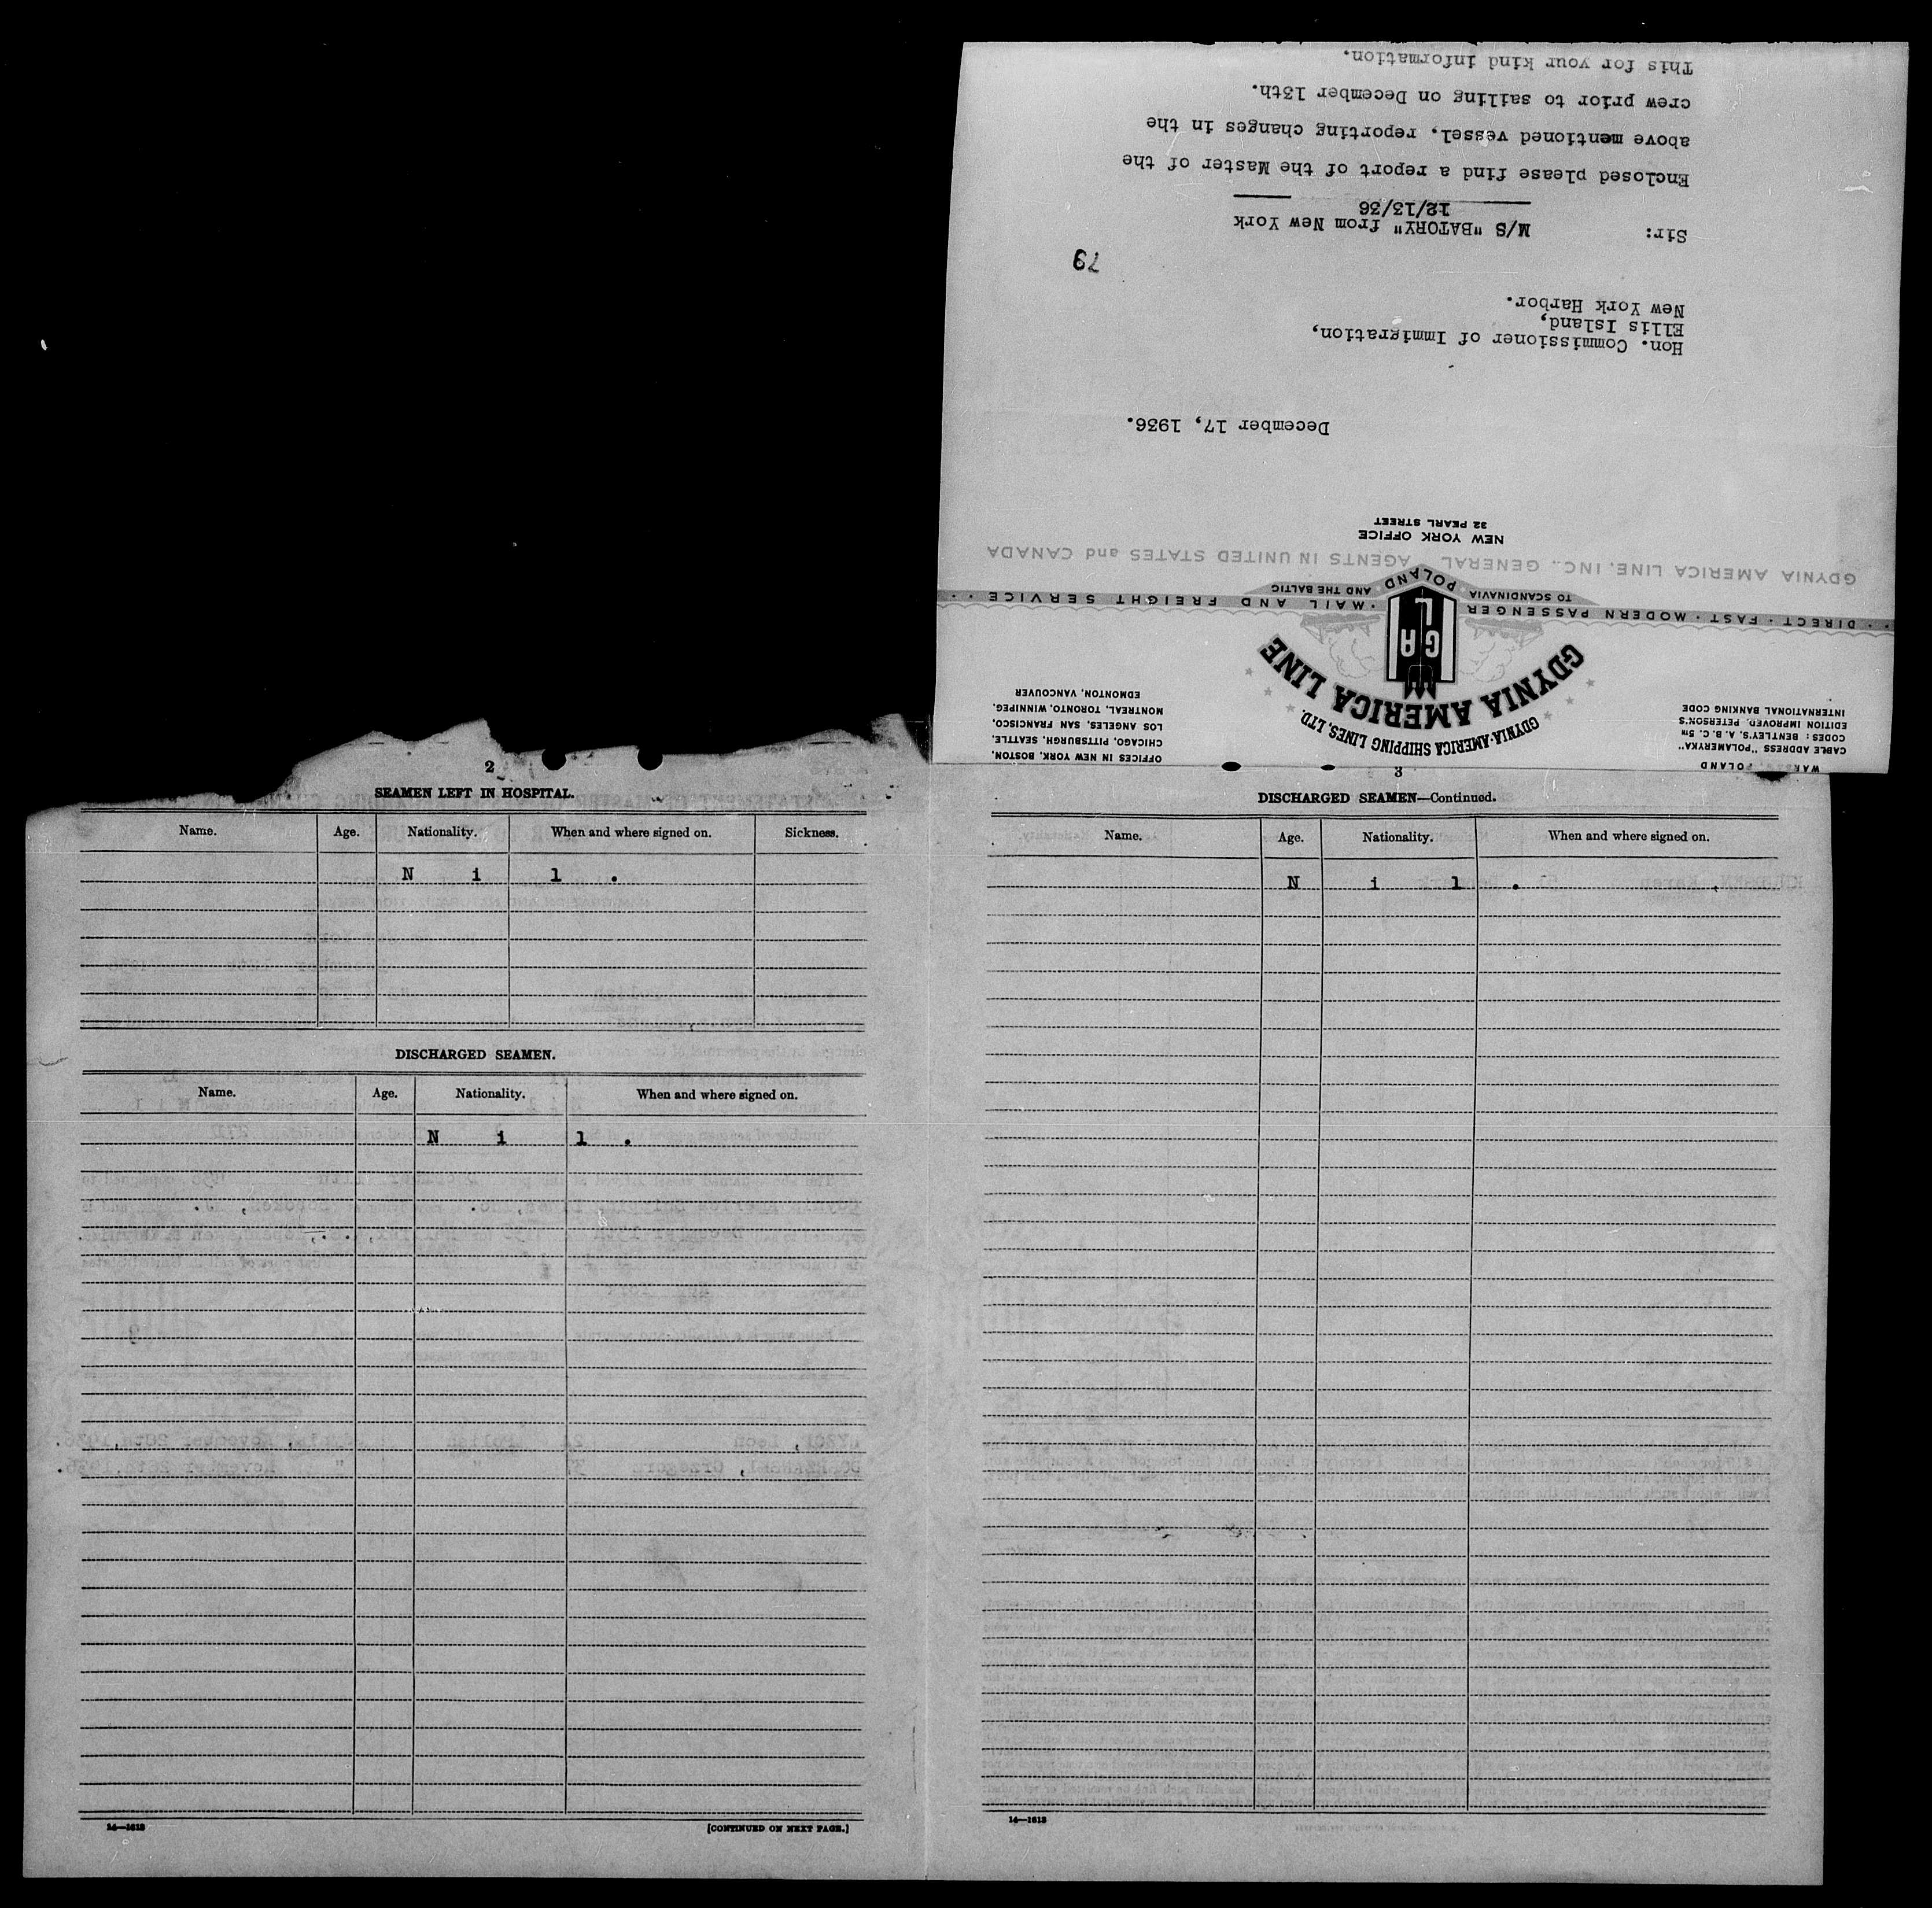 WARSAW, POLAND
CABLE ADDRESS "POLAMERYKA"
CODES: BENTLEY'S, A. B. C. 5TH
EDITION IMPROVED, PETERSON'S
INTERNATIONAL BANKING CODE
GDYNIA-AMERICA SHIPPING LINES, LTD.
GDYNIA AMERICA LINE
GAL
OFFICES IN NEW YORK, BOSTON,
CHICAGO, PITTSBURGH, SEATTLE,
LOS ANGELES, SAN FRANCISCO,
MONTREAL, TORONTO, WINNIPEG,
EDMONTON, VANCOUVER
· · DIRECT · FAST · MODERN PASSENGER · MAIL AND FREIGHT SERVICE · ·
TO SCANDINAVIA · POLAND · AND THE BALTIC
GDYNIA AMERICA LINE, INC., GENERAL AGENTS IN UNITED STATES and CANADA
NEW YORK OFFICE
32 PEARL STREET
December 17, 1936.
Hon. Commissioner of Immigration,
Ellis Island,
New York Harbor.
79
Sir: M/S "BATORY" from New York
12/13/36
Enclosed please find a report of the Master of the
above mentioned vessel, reporting changes in the
crew prior to sailing on December 13th.
This for your kind information.
2
SEAMEN LEFT IN HOSPITAL.
Name. Age. Nationality. When and where signed on. Sickness.
N i l .
DISCHARGED SEAMEN.
Name. Age. Nationality. When and where signed on.
N i l .
14—1613 [CONTINUED ON NEXT PAGE.]
3
DISCHARGED SEAMEN—Continued.
Name. Age. Nationality. When and where signed on.
N i l .
14—1613